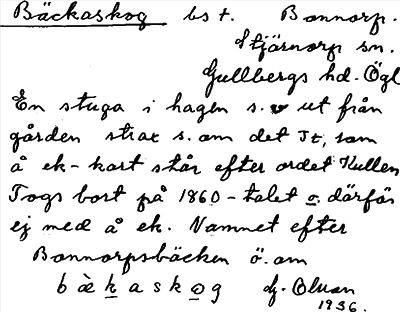 Bäckaskog bs t. Bonnorp.
Stjärnorp sn.
Gullbergs hd. Ögl
En stuga i hagen s.v ut från
gården strax s. om det Tt, som
å ek-kart står efter ordet Kullen
Togs bort på 1860-talet o. därför
ej med å ek. Namnet efter
Bonnorpsbäcken ö. om
bäkaskog
1936.